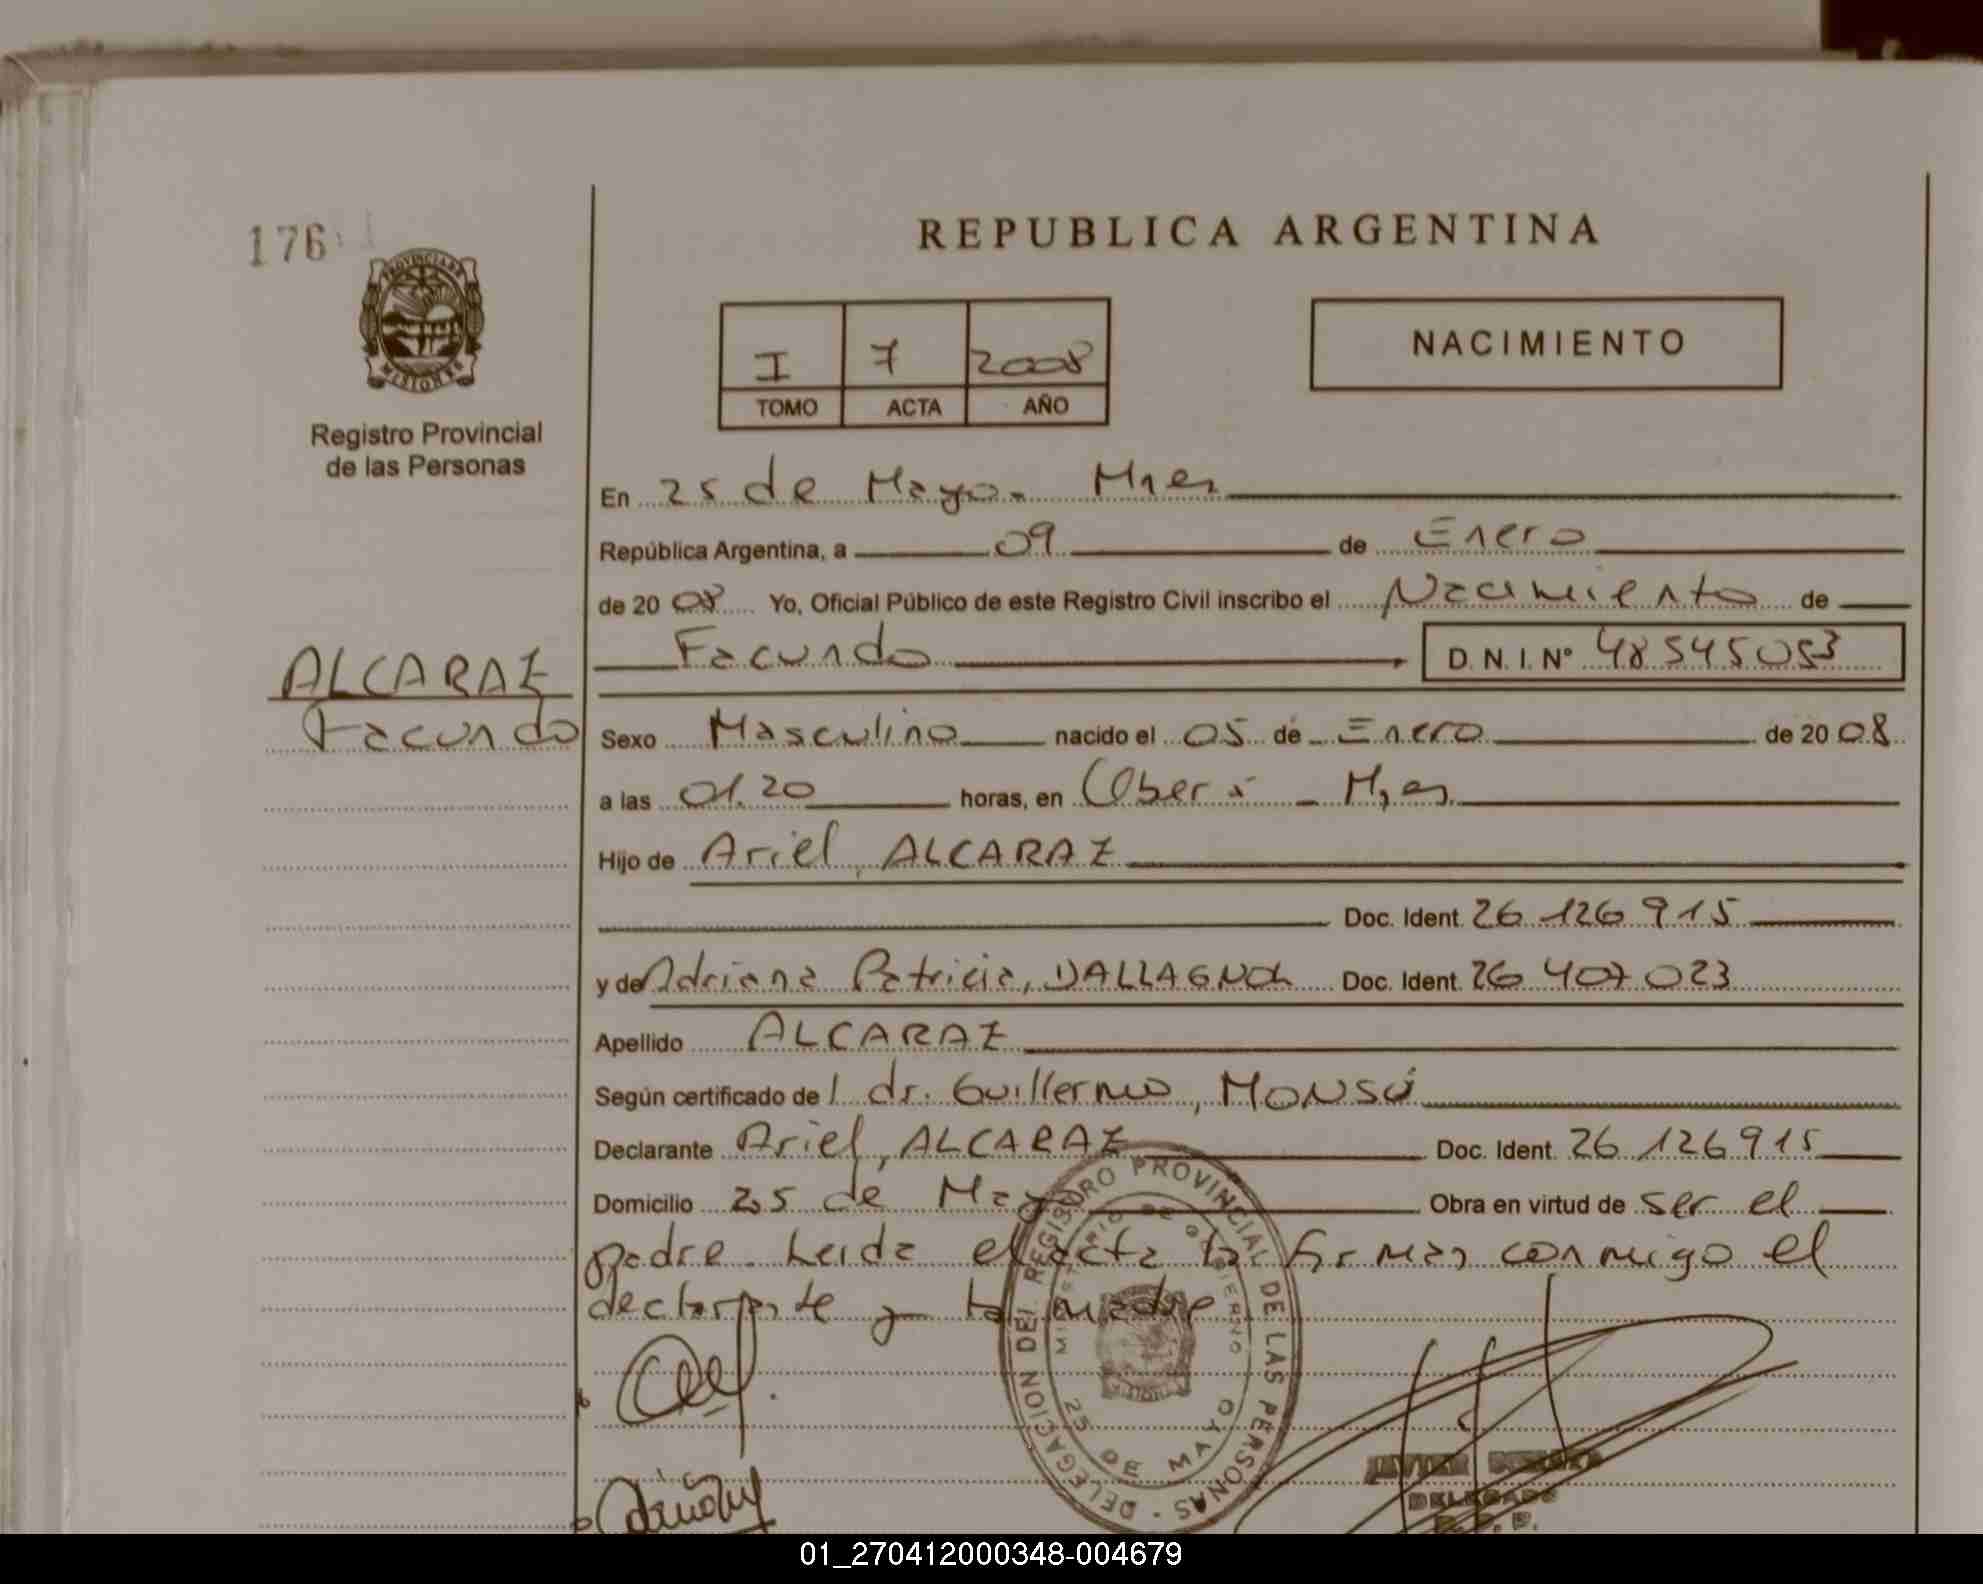 176
REPUBLICA ARGENTINA
PROVINCIA DE
MISIONES
I 7 2008
TOMO ACTA AÑO
NACIMIENTO
Registro Provincial
de las Personas
En 25 de Mayo. Mnes
República Argentina, a 09 de Enero
de 2008 Yo, Oficial Público de este Registro Civil inscribo el Nacimiento de
Facundo D. N. I. N° 48545053
ALCARAZ
Facundo
Sexo Masculino nacido el 05 de Enero de 2008
a las 01.20 horas, en Oberá - Mnes
Hijo de Ariel, ALCARAZ
Doc. Ident. 26 126 915
y de Adriana Patricia, DALLAGNOL Doc. Ident. 26 407 023
Apellido ALCARAZ
Según certificado de l dr. Guillermo, MONSÚ
Declarante Ariel, ALCARAZ Doc. Ident. 26 126915
Domicilio 25 de Mayo Obra en virtud de ser el
padre. Leida el acta la firman conmigo el
declarante y la madre
DELEGACION DEL REGISTRO PROVINCIAL DE LAS PERSONAS
MINISTERIO DE GOBIERNO
25 DE MAYO
JAVIER
DELEGADO
01_270412000348-004679